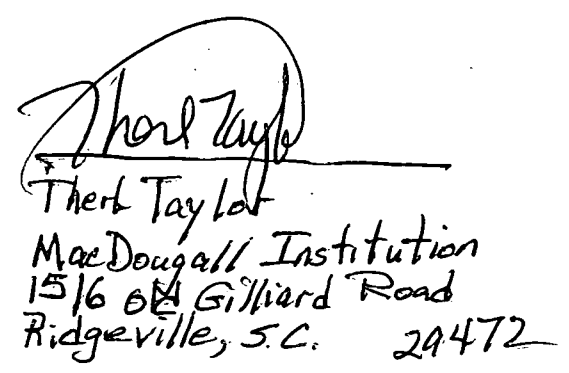 Therl Taylor
Therl Taylor
MacDougall Institution
1516 Old Gilliard Road
Ridgeville, S.C. 29472